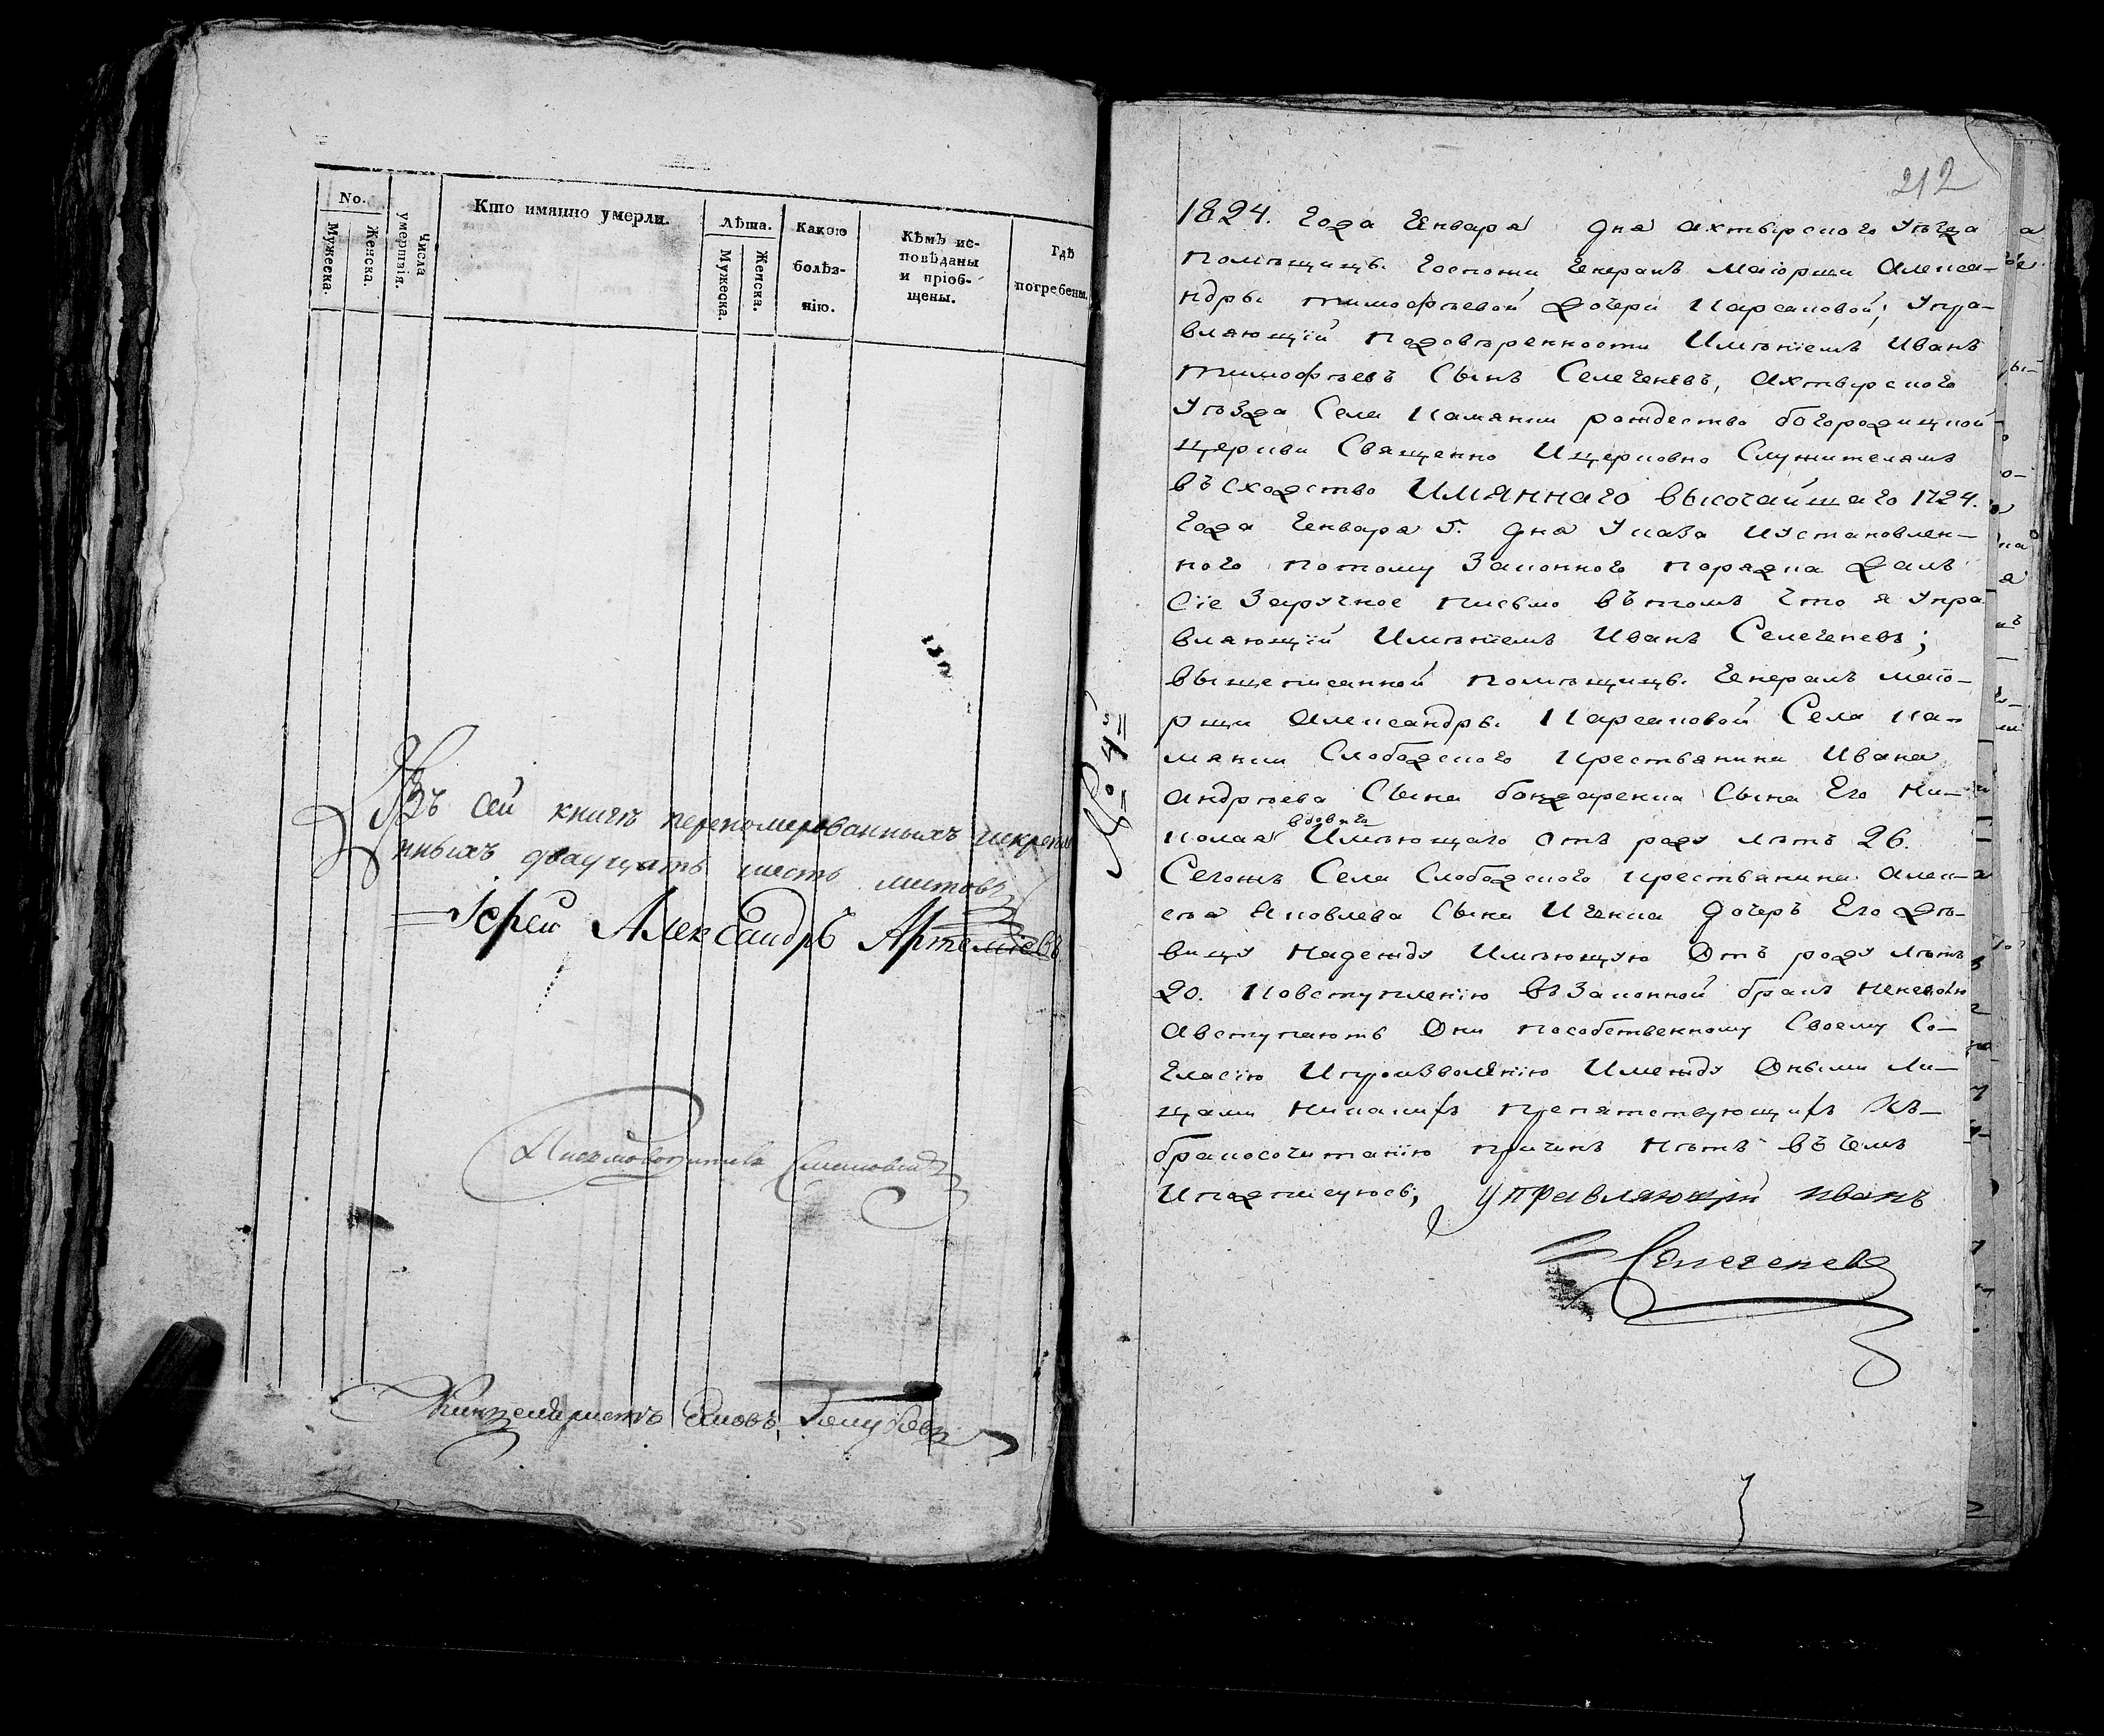 No.
Мужеска.
Женска.
Числа умертвія.
Кто имянно умерли.
Лѣта.
Мужеска.
Женска.
Какою болѣз-
нію.
Кѣмъ ис-
повѣданы
и пріоб-
щены.
Гдѣ
погребены.
Въ сей книгѣ перепомерованныхъ искрепле
нныхъ двацать шесть листовъ
Іерей Александръ Артеміевъ
Писмоводитель
Канцеляристъ
212
№ 4й
1824. Года Генваря дня Ахтырского Уѣзда
Помѣщицы Госпожи Генералъ Маіорши Алекса–
ндры Тимофѣевой дочери Карсаковой; Упра–
вляющій Подовѣренности Имѣніемъ Иванъ
Тимофѣевъ Сынъ Селегеневъ, Ахтырского
Уѣзда Села Каменки рождество богородицкой
церкви Священно Ицерковно Служителямъ
въсходство Имяннаго высочайшаго 1724.
Года Генваря 5. дня Указа Иустановлен–
ного потому Законного порядка далъ
Сіе Заручное письмо вътомъ что я Упра
вляющій Имѣніемъ Иванъ Селегеневъ;
вышеписанной помѣщицы Генералъ маіо–
рши Александры Карсаковой Села Ка–
менки Слободского крестьянина Ивана
Андрѣева Сына бондаренка Сына Его Ни–
вдоваго
колая Имѣющаго отъ роду лѣтъ 26.
Сегожъ Села Слободского крестьянина Алек–
сѣя Яковлева Сына дочеръ Его дѣ–
вицу Надежду Имѣющую Отъ роду лѣтъ
20. Ковступленію въ Законной бракъ неневолю
Авступаютъ Они пособственному Своему Со–
гласію Ипроизволенію Имежду Оными Ли–
цами никакихъ препятствующихъ Къ–
бракосочитанію причинъ нѣтъ вътемъ
Иподписуюсь, управляющій иванъ
Селегеневъ